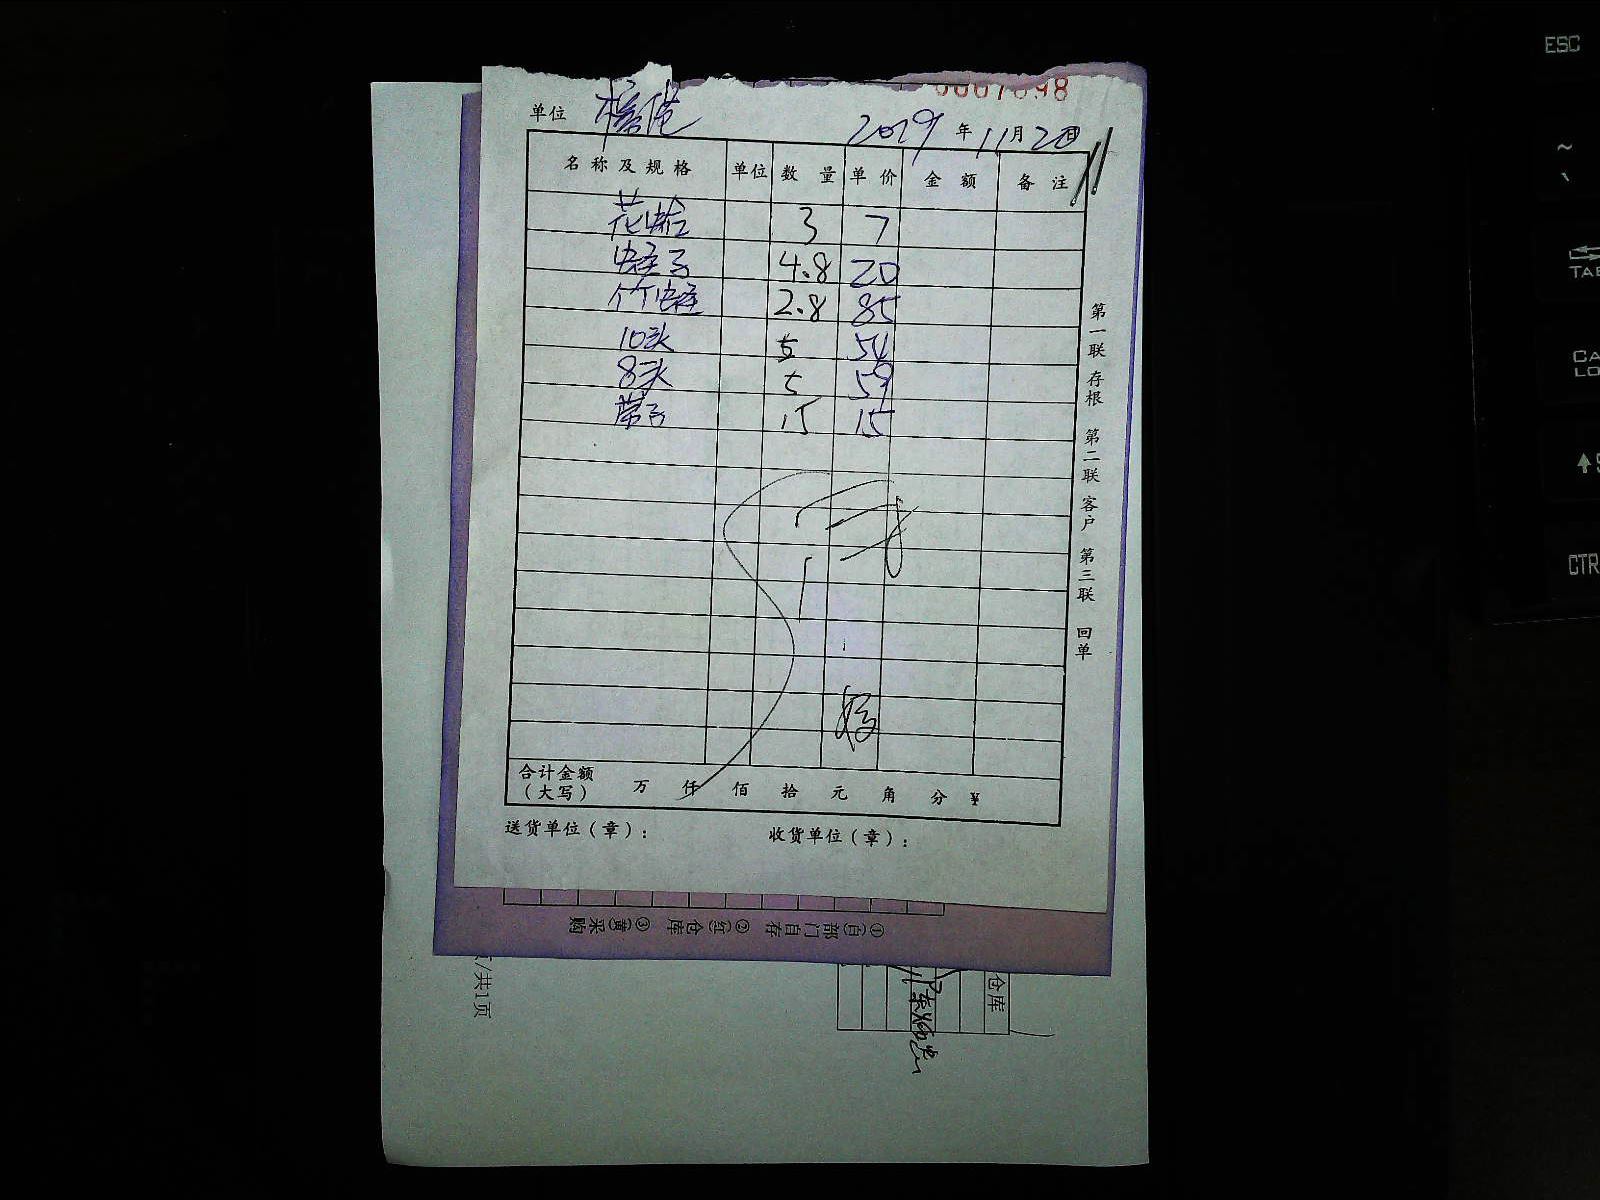 0007898
单位
2019年11月20日
名称及规格 单位 数量 单价 金额 备注
花蛤 3 7
蛏子 4.8 20
竹蛏 2.8 85
10头 5 54
8头 5 59
带子 15 15
合计金额（大写） 万 仟 佰 拾 元 角 分 ¥
送货单位（章）： 收货单位（章）：
第一联 存根 第二联 客户 第三联 回单
①(白)部门自存 ②(红)仓库 ③(黄)采购
/共1页
仓库
ESC
~
TAB
CA
LO
CTR